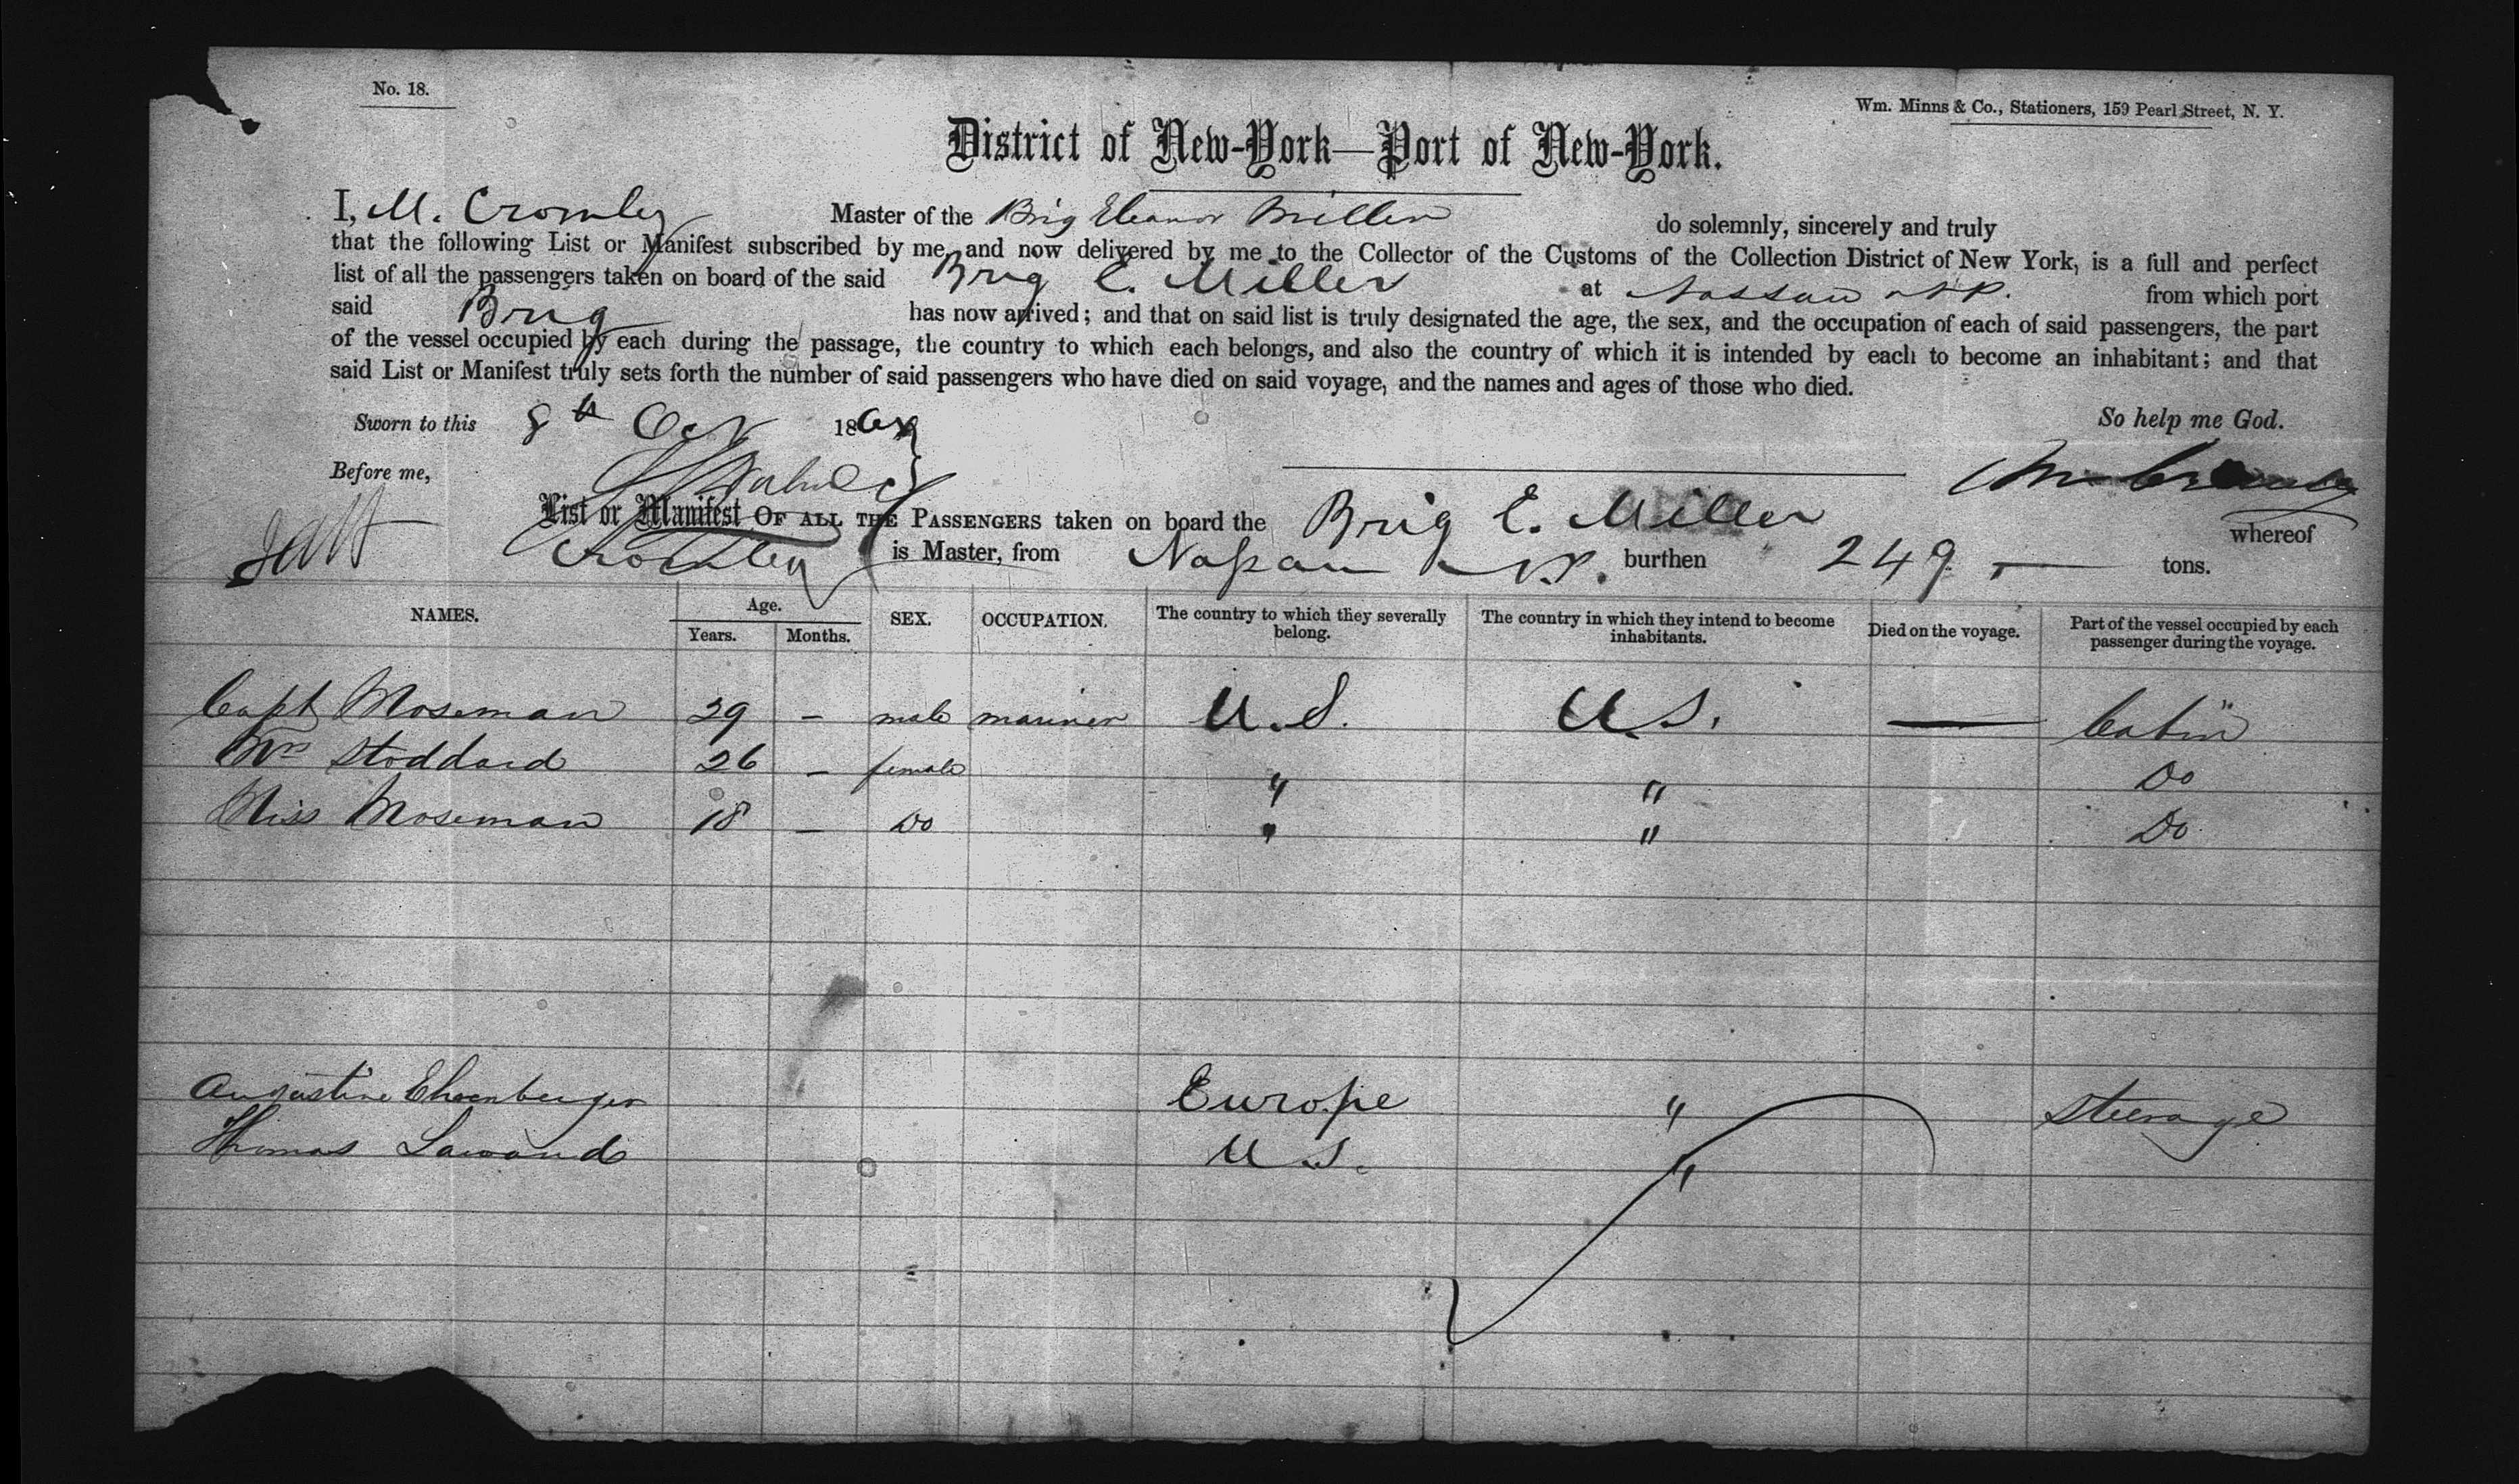 No. 18.
Wm. Minns & Co., Stationers, 159 Pearl Street, N. Y.
District of New-York—Port of New-York.
I, M. Cromley Master of the Brig Eleanor Miller do solemnly, sincerely and truly
that the following List or Manifest subscribed by me, and now delivered by me to the Collector of the Customs of the Collection District of New York, is a full and perfect
list of all the passengers taken on board of the said Brig E. Miller at Nassau N.P. from which port
said Brig has now arrived; and that on said list is truly designated the age, the sex, and the occupation of each of said passengers, the part
of the vessel occupied by each during the passage, the country to which each belongs, and also the country of which it is intended by each to become an inhabitant; and that
said List or Manifest truly sets forth the number of said passengers who have died on said voyage, and the names and ages of those who died.
Sworn to this 8th Oct 186 So help me God.
Before me,
List or Manifest OF ALL THE PASSENGERS taken on board the Brig E. Miller whereof
Cromley is Master, from Nassau N.P. burthen 249 tons.
NAMES. Age. Years. Months. SEX. OCCUPATION. The country to which they severally belong. The country in which they intend to become inhabitants. Died on the voyage. Part of the vessel occupied by each passenger during the voyage.
Capt Moseman 29 – male mariner U.S. U.S. — Cabin
Mrs Stoddard 26 – female " " Do
Miss Moseman 18 – Do " " Do
Augustine Europe " Steerage
Thomas U.S. "